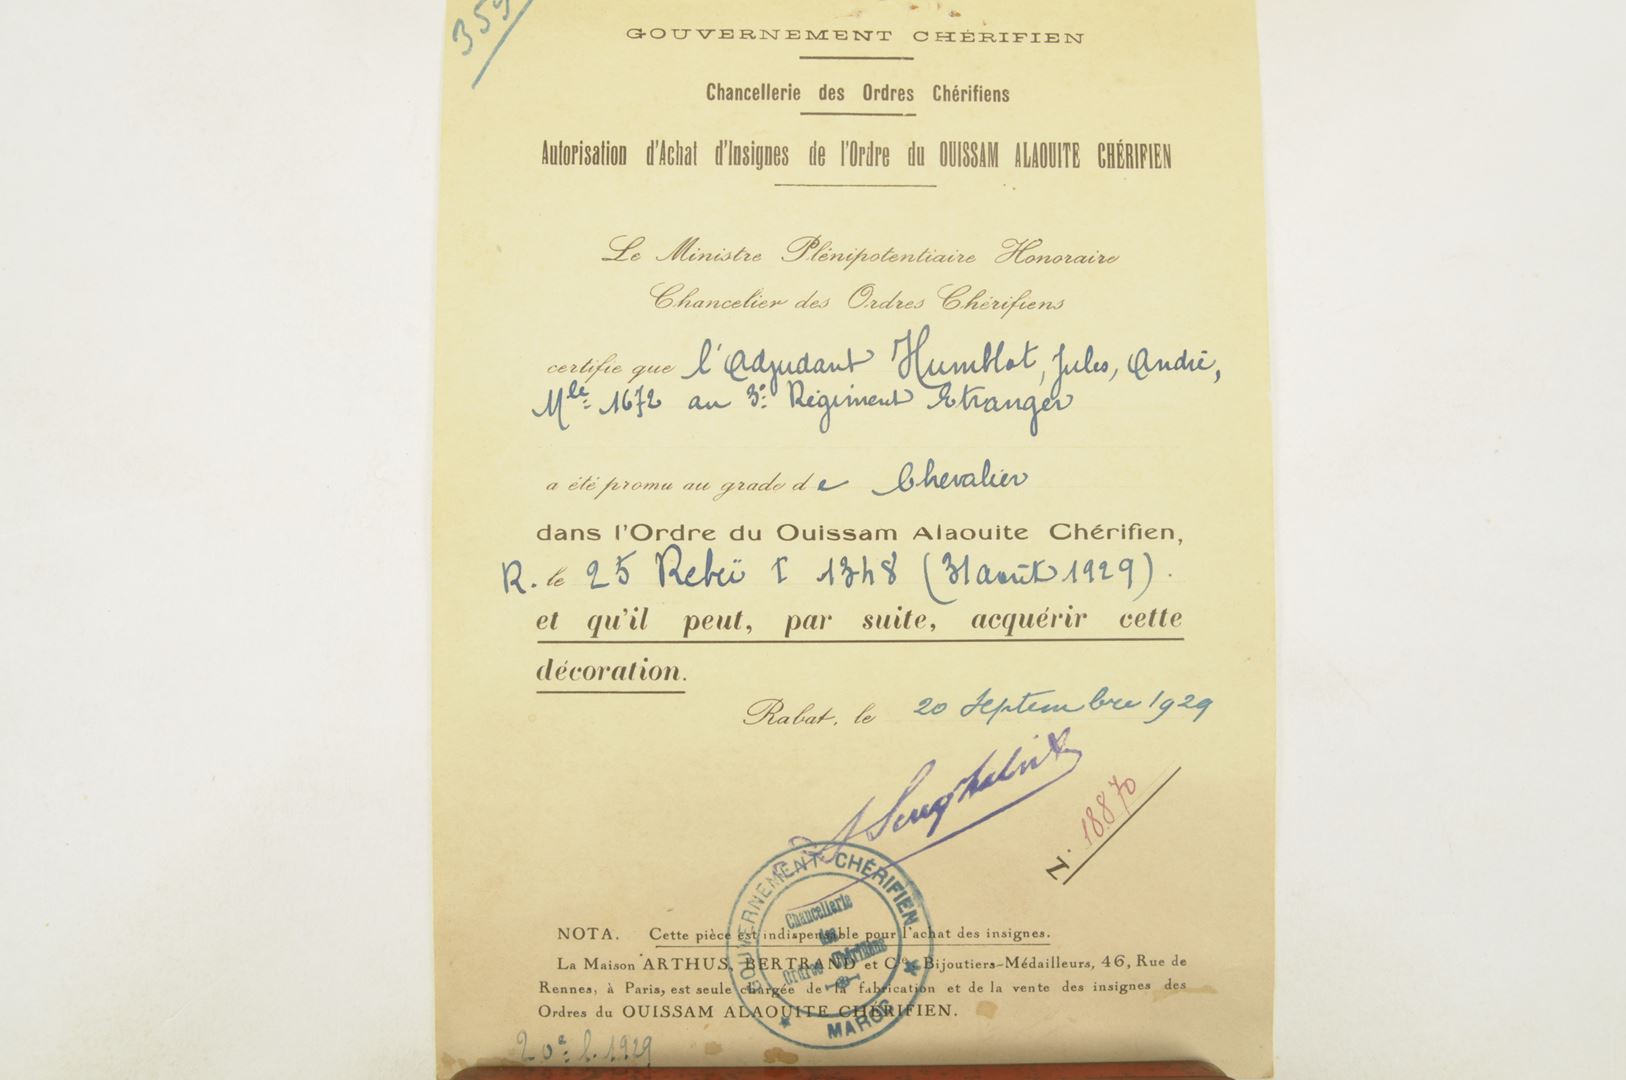 359
GOUVERNEMENT CHÉRIFIEN
Chancellerie des Ordres Chérifiens
Autorisation d'Achat d'Insignes de l'Ordre du OUISSAM ALAOUITE CHÉRIFIEN
Le Ministre Plénipotentiaire Honoraire
Chancelier des Ordres Chérifiens
certifie que l'Adjudant Humblot, Jules, André,
Mle 1672 au 3e Régiment Etranger
a été promu au grade de Chevalier
dans l'Ordre du Ouissam Alaouite Chérifien,
R. le 25 Rebià I 1348 (31 août 1929).
et qu'il peut, par suite, acquérir cette
décoration.
Rabat, le 20 Septembre 1929
N. 18870
GOUVERNEMENT CHÉRIFIEN
Chancellerie
des
Ordres Chérifiens
MAROC
NOTA. Cette pièce est indispensable pour l'achat des insignes.
La Maison ARTHUS, BERTRAND et Cie, Bijoutiers-Médailleurs, 46, Rue de
Rennes, à Paris, est seule chargée de la fabrication et de la vente des insignes des
Ordres du OUISSAM ALAOUITE CHÉRIFIEN.
1929